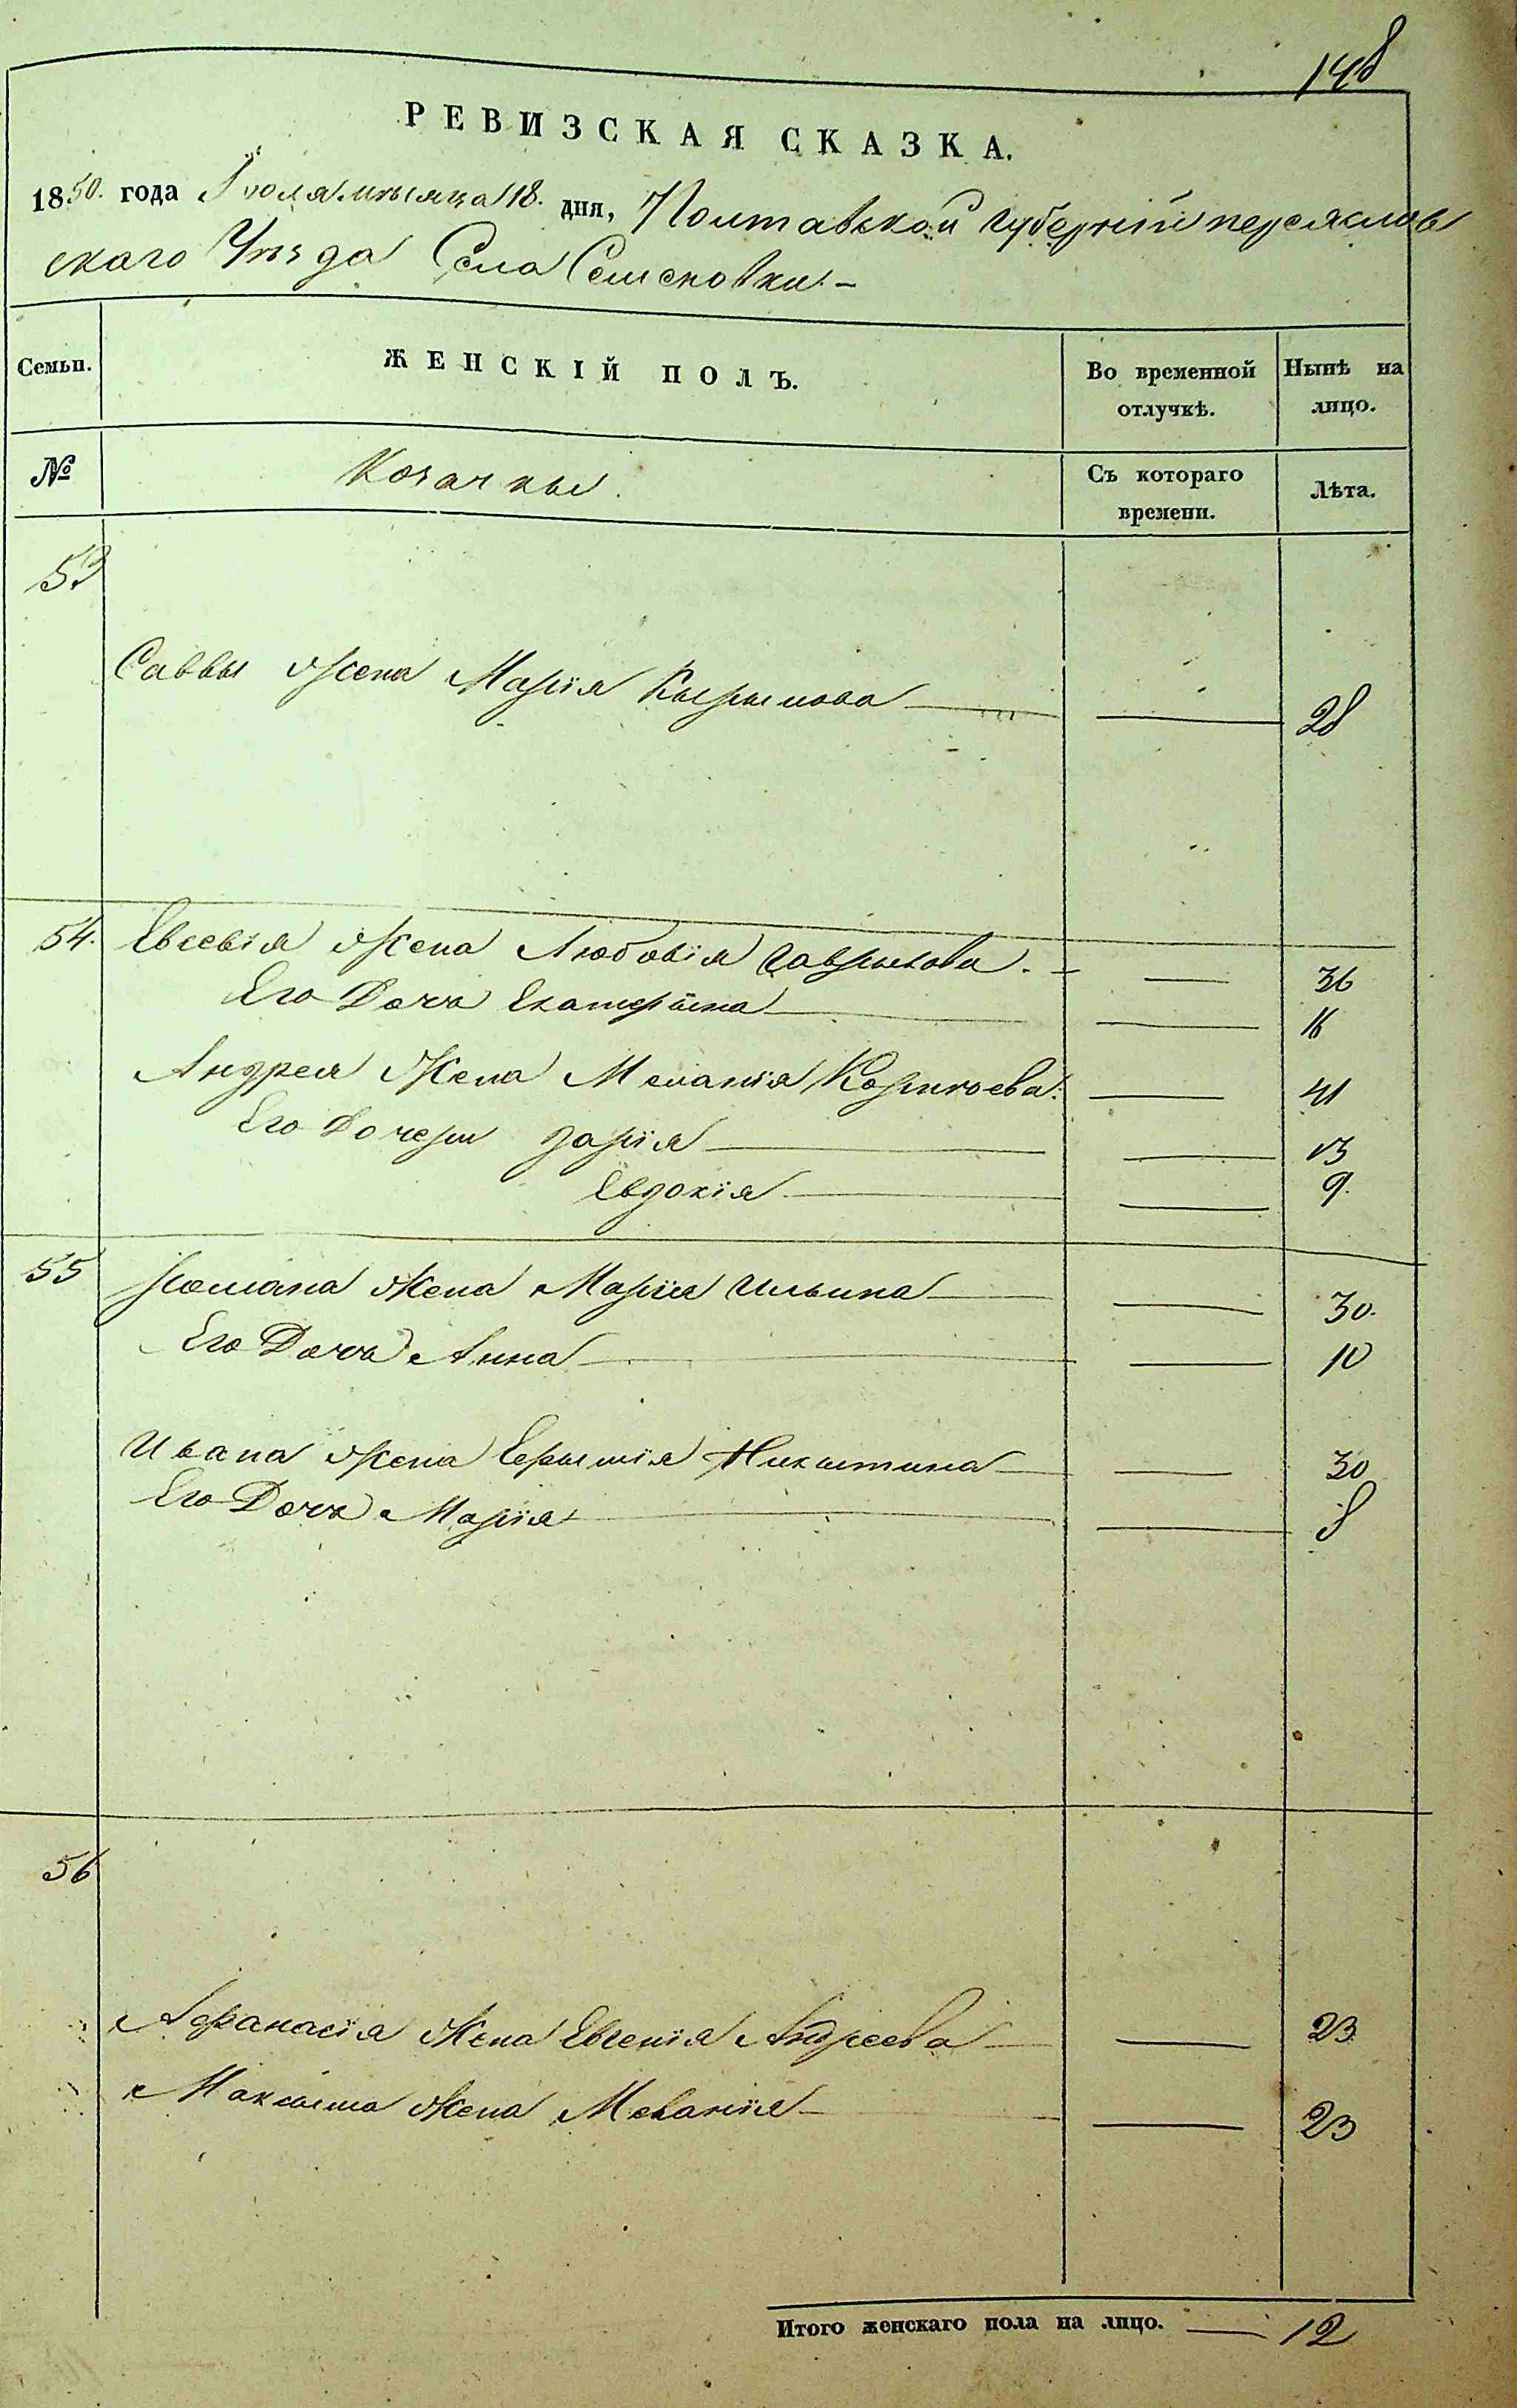 148
РЕВИЗСКАЯ СКАЗКА.
1850. года Іюля мѣсяца 18. дня, Полтавской губерніи переяслав
скаго Уѣзда Села Семеновки.
Семьи.
ЖЕНСКІЙ ПОЛЪ.
Во временной отлучкѣ.
Нынѣ на лицо.
№
Козачки.
Съ котораго времени.
Лѣта.
53
Саввы Жена Марія Кырылова — — 28
54. Евсевія Жена Любовія Гаврылова. — — 36
Его Дочь Екатерина — — 16
Андрея Жена Меланія Корнѣева. — 41
Его Дочери Дарія — — 13
Евдокія — — 9.
55 Романа Жена Марія Ильина — — 30.
Его Дочь Анна — — 10
Ивана Жена Никытина — — 30
Его Дочь Марія — — 8
56
Афанасія Жена Евгенія Андреева — — 23
Максыма Жена Меланія — — 23
Итого женскаго пола на лицо. — 12